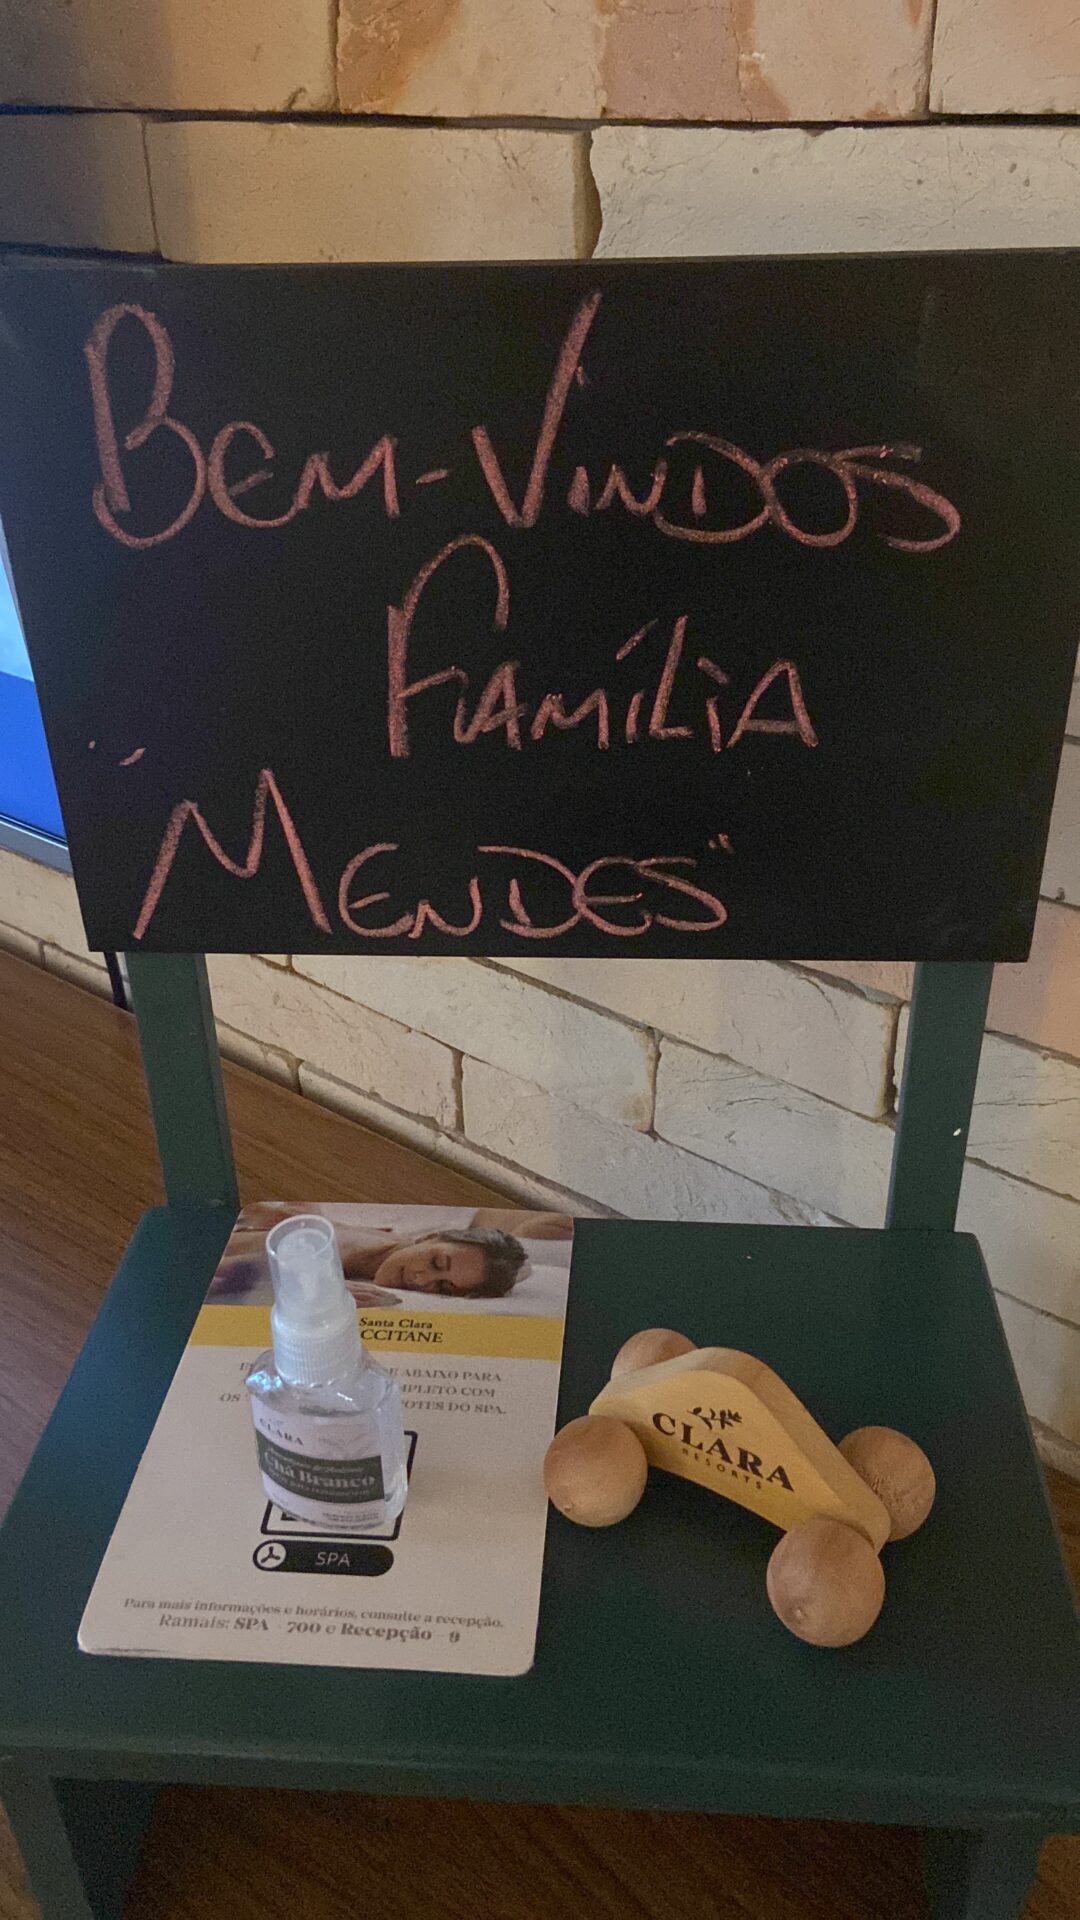 BEM-VINDOS
FAMÍLIA
"MENDES"
Santa Clara
CCITANE
E ABAIXO PARA
MPLETO COM
OS OTES DO SPA.
CLARA
Chá Branco
SPA
Para mais informações e horários, consulte a recepção.
Ramais: SPA 700 e Recepção 9
CLARA
RESORTS